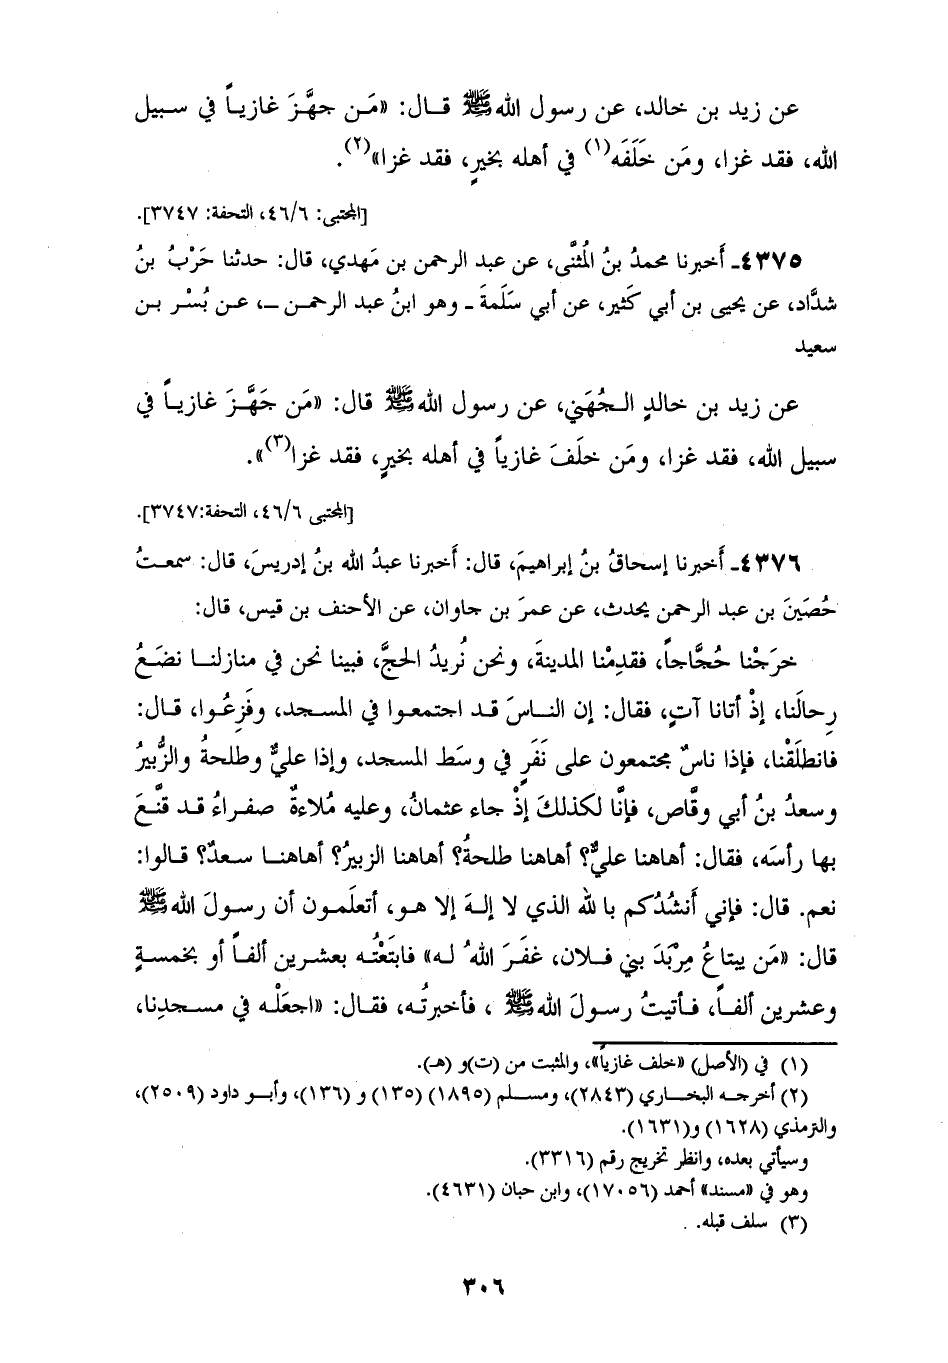 عن زيد بن خالد، عن رسول الله ﷺ قـال: «مَـن جهَّزَ غازيـاً في سـبيل
الله، فقد غزا، ومَن خَلَفَه(١) في أهله بخيرٍ، فقد غزا»(٢).
[المجتبى: ٤٦/٦، التحفة: ٣٧٤٧].
٤٣٧٥ـ أَخبرنا محمدُ بنُ الُمثنَّى، عن عبد الرحمن بن مَهدي، قال: حدثنا حَرْبُ بنُ
شدَّاد، عن يحيى بن أبي كَثير، عن أبي سَلَمةَ ـ وهو ابنُ عبد الرحمـن ـ، عـن بُسْـر بـن
سعيد
عن زيد بن خالدٍ الـجُهَني، عن رسول الله ﷺ قال: «مَن جَهَّـزَ غازيـاً في
سبيل الله، فقد غزا، ومَن خلَفَ غازياً في أهله بخيرٍ، فقد غزا(٣)».
[المجتبى ٤٦/٦، التحفة:٣٧٤٧].
٤٣٧٦ـ أَخبرنا إسحاقُ بنُ إبراهيمَ، قال: أَخبرنا عبدُ الله بنُ إدريسَ، قال: سمعتُ
حُصَينَ بن عبد الرحمن يحدث، عن عمرَ بن جاوان، عن الأحنف بن قيس، قال:
خرَجْنا حُجَّاجاً، فقدِمْنا المدينةَ، ونحن نُريدُ الحجَّ، فبينا نحن في منازلنـا نضَـعُ
رِحالَنا، إذْ أتانا آتٍ، فقال: إن النـاسَ قـد اجتمعـوا في المسـجد، وفَزِعُـوا، قـال:
فانطلَقْنا، فإذا ناسٌ مجتمعون على نفَرٍ في وسَط المسجد، وإذا عليٌّ وطلحةُ والزُّبيرُ
وسعدُ بنُ أبي وقَّاص، فإنَّا لكذلكَ إذْ جاء عثمانُ، وعليه مُلاءةٌ صفـراءُ قـد قنَّـعَ
بها رأسَه، فقال: أهاهنا عليٌّ؟ أهاهنا طلحةُ؟ أهاهنا الزبيرُ؟ أهاهنـا سعدٌ؟ قـالوا:
نعم. قال: فإني أَنشُدُكم بالله الذي لا إلـهَ إلا هـو، أتعلَمـون أن رسـولَ الله ﷺ
قال: «مَن يبتاعُ مِرْبَدَ بني فـلان، غفَـرَ اللهُ لـه» فابتَعْتُـه بعشـرين ألفـاً أو بخمسـةٍ
وعشرين ألفـاً، فـأتيتُ رسـولَ الله ﷺ ، فأخبرتُـه، فقـال: «اجعَلْـه في مسـجدِنا،
(١) في (الأصل) «خلف غازياً»، والمثبت من (ت) و (هـ).
(٢) أخرجـه البخـاري (٢٨٤٣)، ومسـلم (١٨٩٥) (١٣٥) و (١٣٦)، وأبـو داود (٢٥٠٩)،
والترمذي (١٦٢٨) و(١٦٣١).
وسيأتي بعده، وانظر تخريج رقم (٣٣١٦).
وهو في «مسند» أحمد (١٧٠٥٦)، وابن حبان (٤٦٣١).
(٣) سلف قبله.
٣٠٦